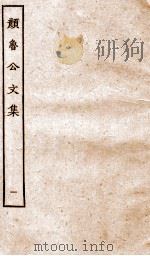 顏魯公文集
一
讀狗
mtoou.info